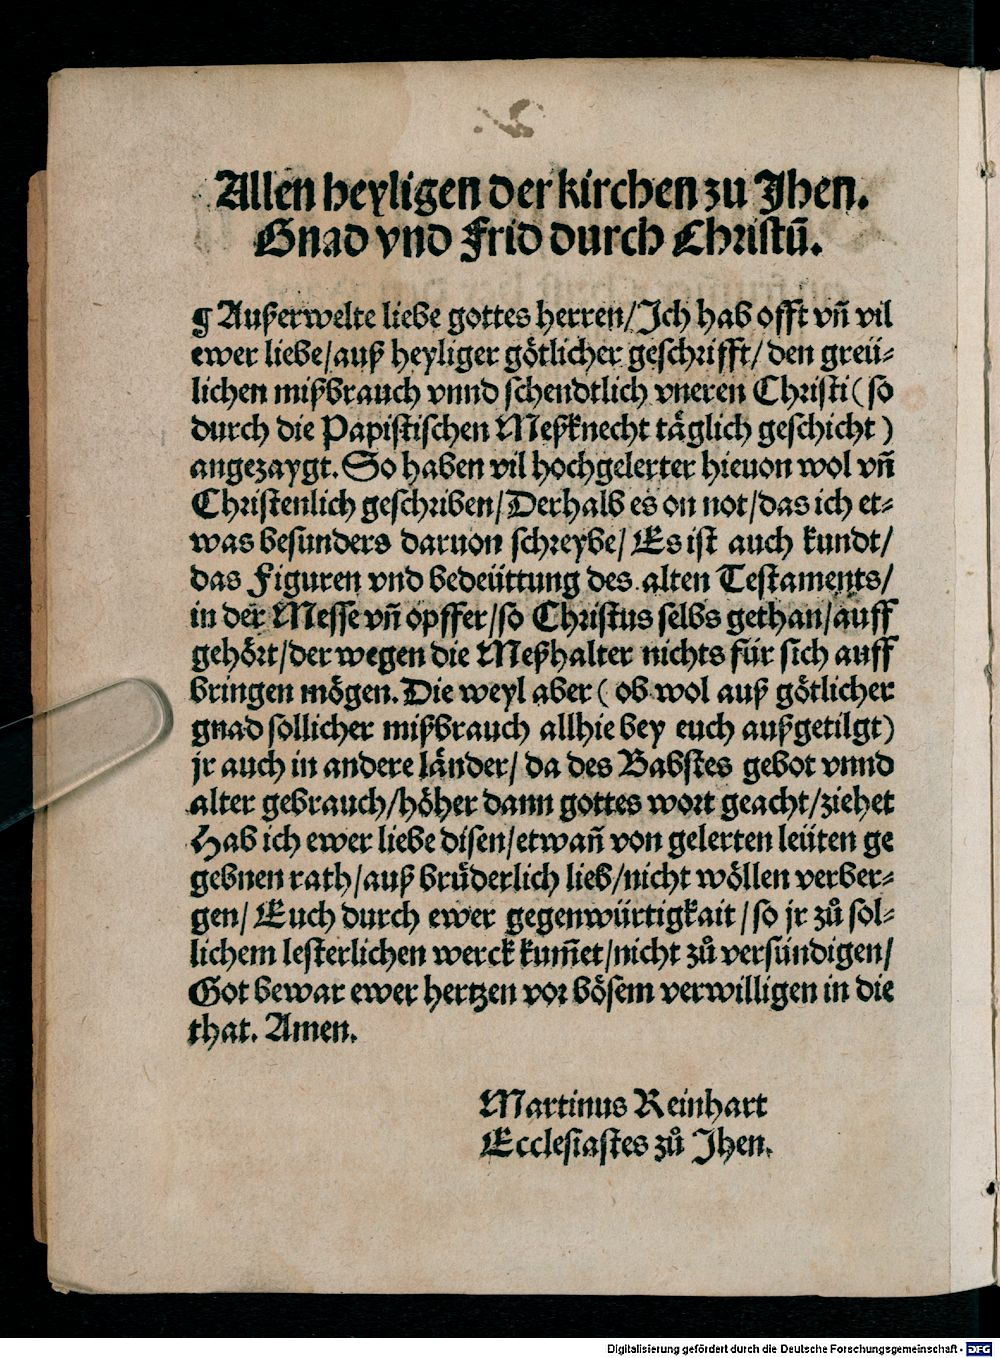 Allen heyligen der kirchen zu Jhen.
Gnad vnd Frid durch Christū.
¶ Außerwelte liebe gottes herren/Jch hab offt vñ vil
ewer liebe/auß heyliger götlicher geschrifft/den greü-
lichen mißbrauch vnnd schendtlich vneren Christi(so
durch die Papistischen Meßknecht täglich geschicht)
angezaygt. So haben vil hochgelerter hieuon wol vñ
Christenlich geschriben/Derhalb es on not/das ich et-
was besunders daruon schreybe/Es ist auch kundt/
das Figuren vnd bedeüttung des alten Testaments/
in der Messe vñ opffer/so Christus selbs gethan/auff
gehört/der wegen die Meßhalter nichts für sich auff
bringen mögen. Die weyl aber(ob wol auß götlicher
gnad sollicher mißbrauch allhie bey euch außgetilgt)
jr auch in andere länder/da des Babstes gebot vnnd
alter gebrauch/höher dann gottes wort geacht/ziehet
Hab ich ewer liebe disen/etwañ von gelerten leüten ge
gebnen rath/auß brüderlich lieb/nicht wöllen verber-
gen/Euch durch ewer gegenwürtigkait/so jr zů sol-
lichem lesterlichen werck kum̄et/nicht zů versündigen/
Got bewar ewer hertzen vor bösem verwilligen in die
that. Amen.
Martinus Reinhart
Ecclesiastes zů Jhen.
Digitalisierung gefördert durch die Deutsche Forschungsgemeinschaft - DFG